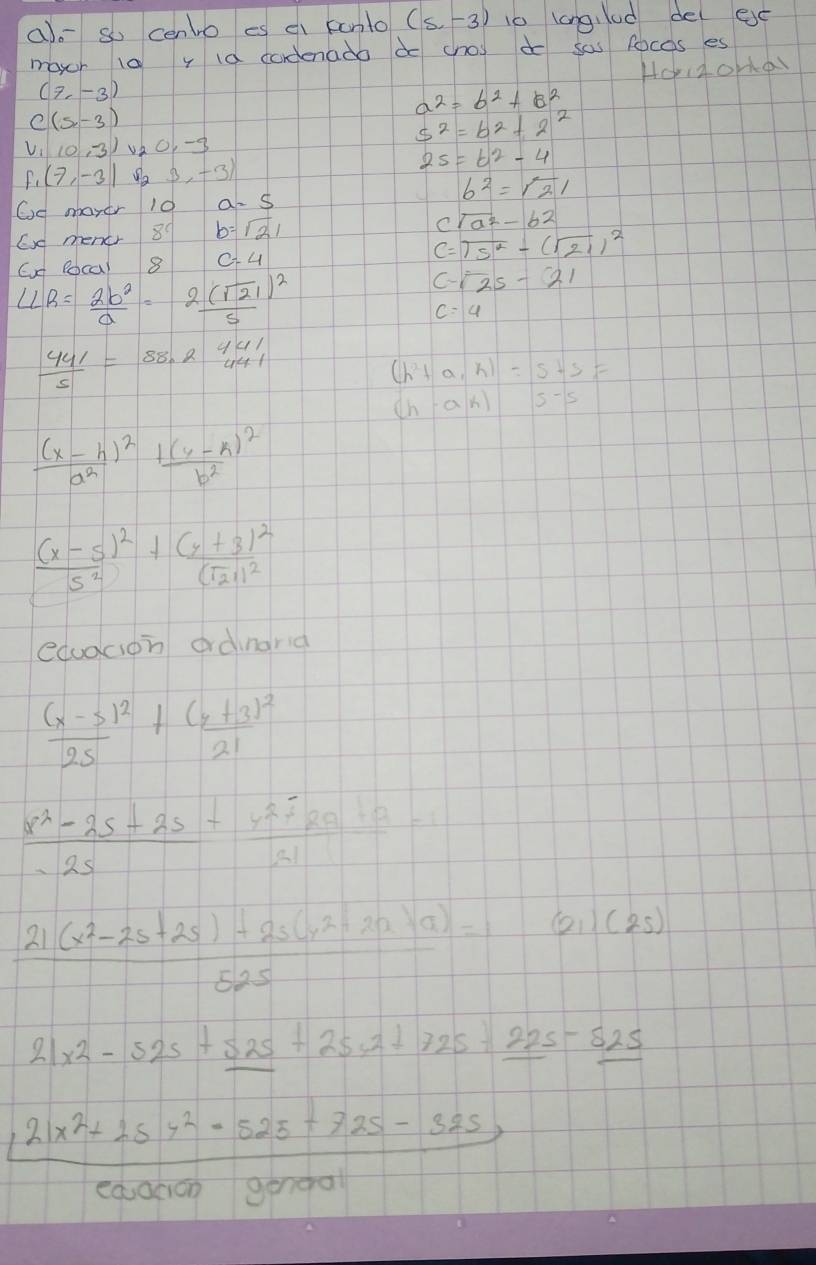 a).- su centro es el punto (5,-3) 10 longitud del eje
mayor 10 y la cordenada de unos de sus focos es
(7,-3) Horizontal
C(5,-3) a² = b² + c²
V₁(10,-3) v₂ 0,-3 5² = b² + 2²
f₁(7,-3) f₂ 3,-3) 25 = b² - 4
b² = √21
Eje mayor 10 a=5 c√a² - b²
Eje menor 8 b=√21 c=√5² - (√21)²
Eje focal 8 c=4 c-√25 - 21
LLR = 2b²/a = 2(√21)²/5 c=4
441/5 = 88.2 441 441
(h+a,k) = 5+5=
(h-ak) 5-5
(x-h)²/a² + (y-k)²/b²
(x-5)²/5² + (y+3)²/(√21)²
ecuación ordinaria
(x-5)²/25 + (y+3)²/21
x²-25+25/-25 + y²+29+9/21
21(x²-25+25)+25(y²+29+9)=1/525 (21)(25)
21x2 - 525 + 525 + 25y2 + 725 + 225 - 525
21x²+25y²-525+725-525
ecuacion general